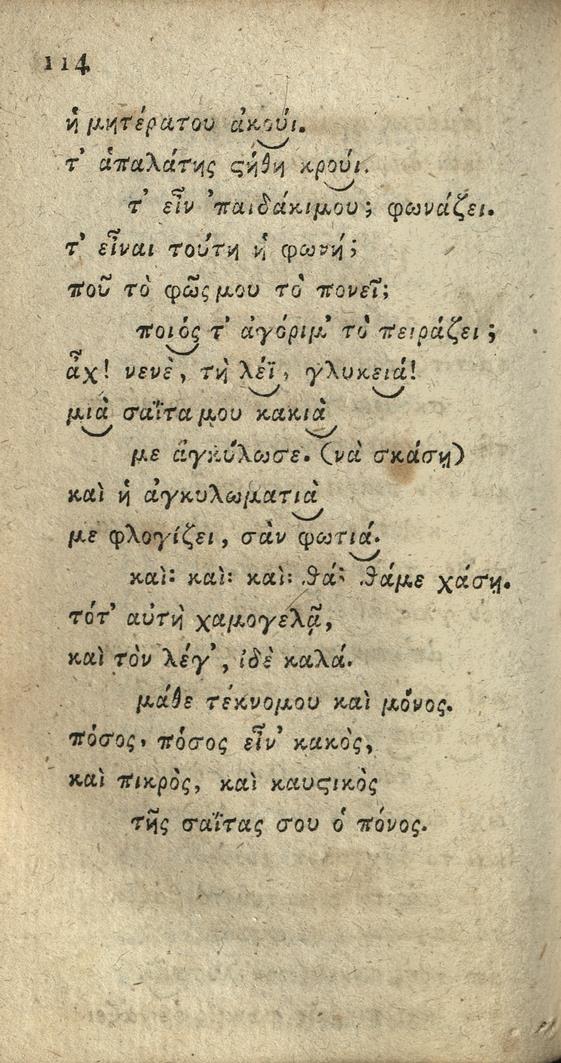 114
ἡ μητέρατου ἀκούι.
τ' ἁπαλάτης ϛήθη κρούι.
τ' εἶν 'παιδάκιμου; φωνάζει.
τ' εἶναι τούτη ἡ φωνή;
ποῦ τὸ φῶς μου τὸ πονεῖ;
ποιός τ' ἀγόριμ' τὸ πειράζει;
ἆχ! νενὲ, τὴ λέϊ, γλυκειά!
μιὰ σαΐτα μου κακιὰ
με ἀγκύλωσε. (νὰ σκάσῃ)
καὶ ἡ ἀγκυλωματιὰ
με φλογίζει, σὰν φωτιά.
καὶ: καὶ: καὶ: θά: θάμε χάσῃ.
τότ' αὐτὴ χαμογελᾷ,
καὶ τὸν λέγ', ἰδὲ καλά.
μάθε τέκνομου καὶ μόνος.
πόσος, πόσος εἶν' κακὸς,
καὶ πικρὸς, καὶ καυϛικὸς
τῆς σαΐτας σου ὁ πόνος.